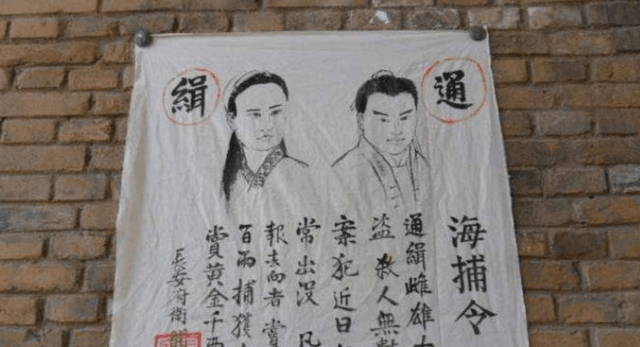 通緝
海捕令
通緝雌雄大
盜殺人無數
案犯近日
常出没 凡
報去向者賞
百兩捕獲
賞黃金千兩
長安府衙